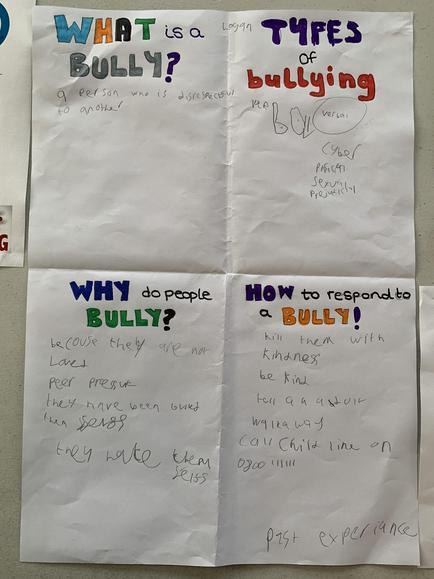 WHAT is a
BULLY?
a person who is disrespectful
to another
Logan
TYPES
OF
bullying
verbal
Cyber
Sexual
WHY do people
BULLY?
because they are not
Loved
Peer Pressure
they have been
they hate them
HOW to respond to
a BULLY!
kill them with
kindness
be kind
tell a adult
walk away
call Child line on
0800 111111
past experiance